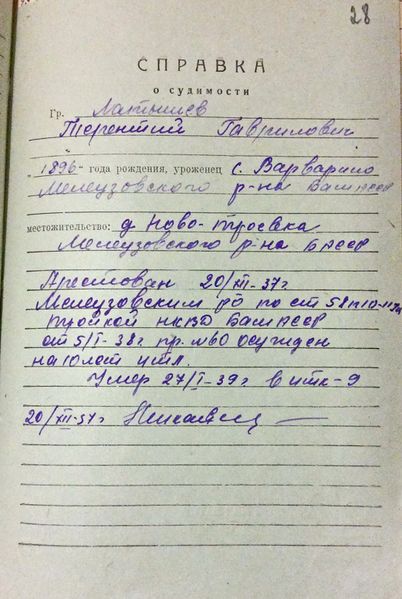 28
СПРАВКА
о судимости
Гр. Латышев
Терентий Гаврилович
1896 года рождения, уроженец с. Варварино
Мелеузовского р-на Башасср
местожительство: д Ново-троевка
Мелеузовского р-на БАССР
Арестован 20/XII-37г
Мелеузовским ро по ст 58 п 10-11 УК
тройкой НКВД Башасср
от 5/I-38г. пр. №60 осужден
на 10 лет итл.
Умер 27/I-39г в итк-9
20/XII-57г